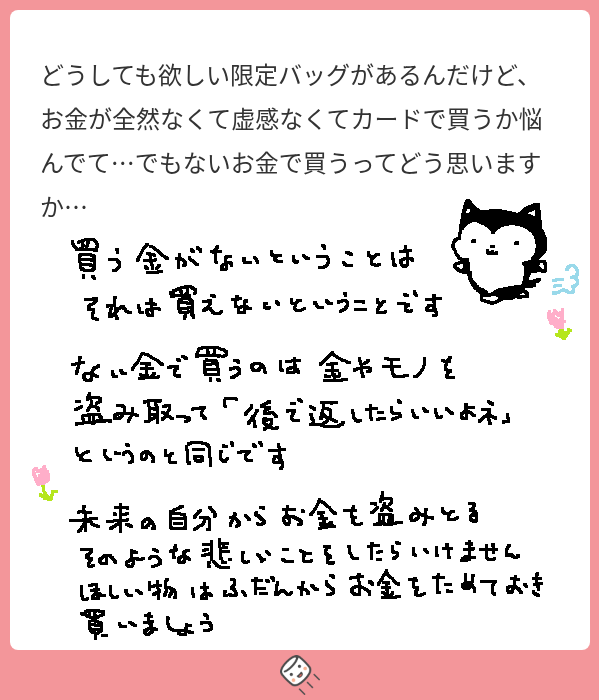 どうしても欲しい限定バッグがあるんだけど、
お金が全然なくて虚感なくてカードで買うか悩
んでて…でもないお金で買うってどう思います
か…
買う金がないということは
それは買えないということです
ない金で買うのは金やモノを
盗み取って「後で返したらいいよネ」
というのと同じです
未来の自分からお金を盗みとる
そのような悲しいことをしたらいけません
ほしい物はふだんからお金をためておき
買いましょう